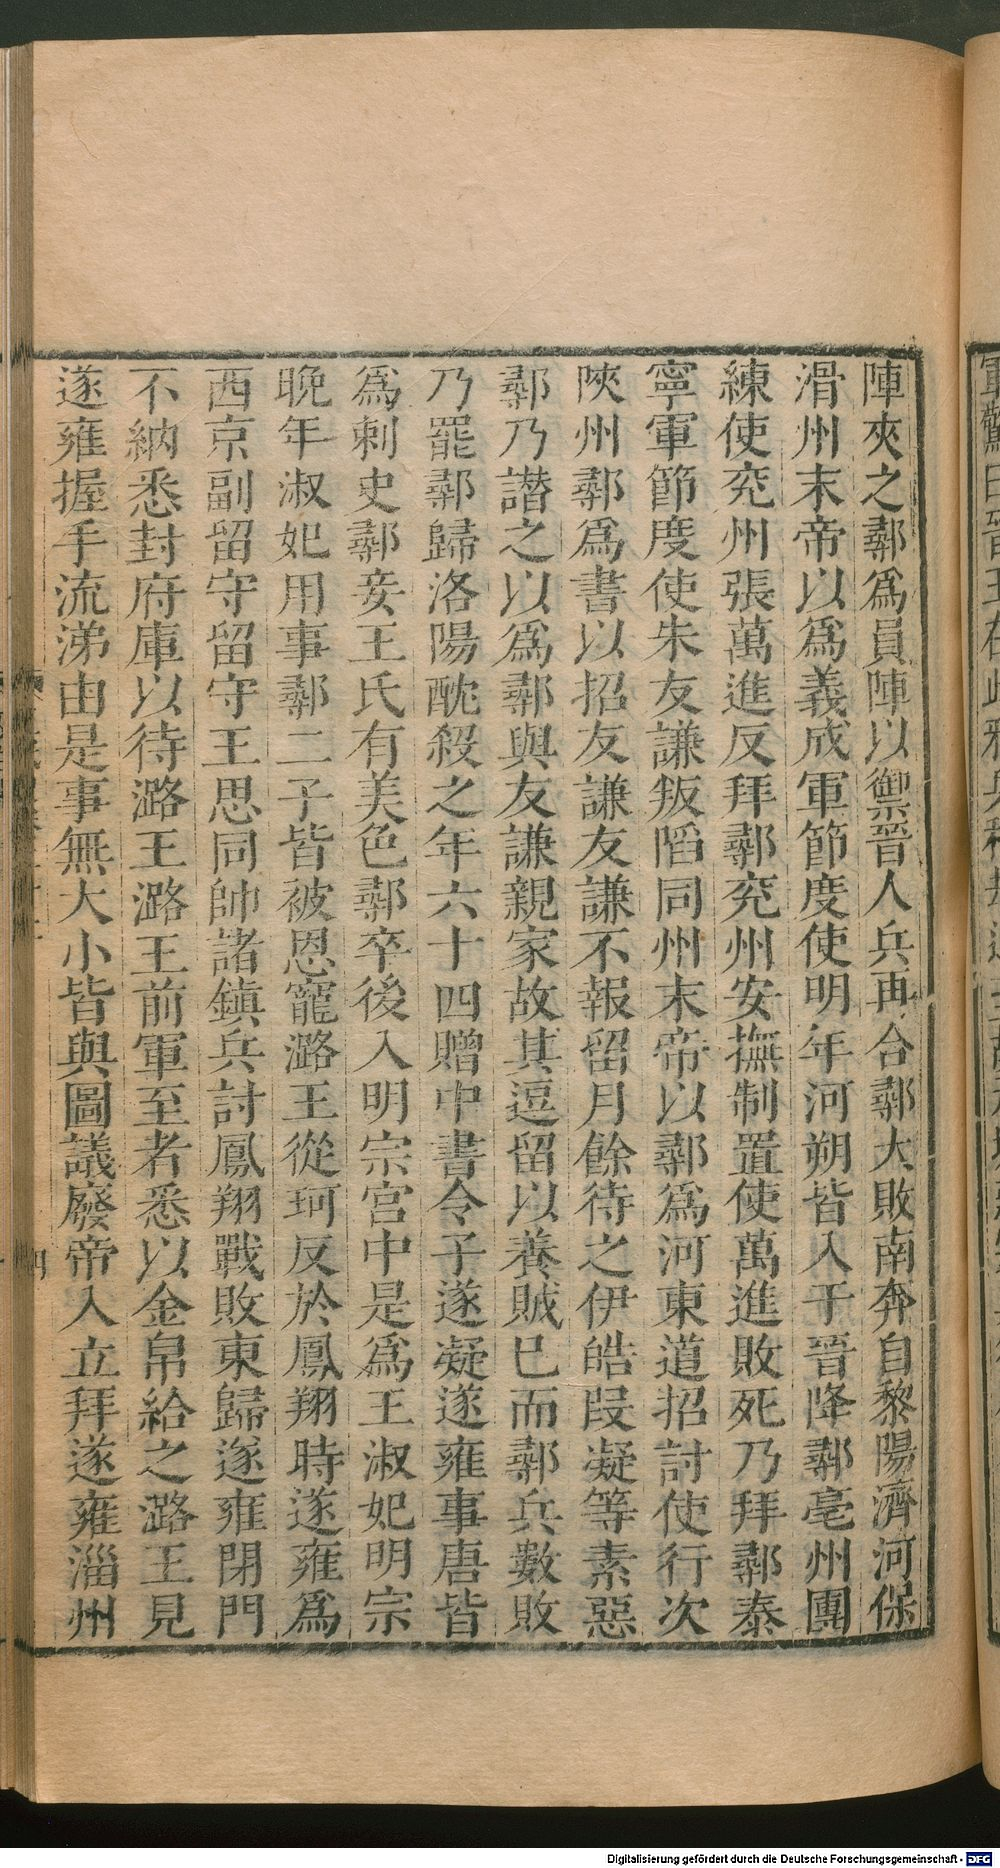 陣夾之鄩爲員陣以禦晉人兵再合鄩大敗南奔自黎陽濟河保
滑州末帝以爲義成軍節度使明年河朔皆入于晉降鄩亳州團
練使兖州張萬進反拜鄩兖州安撫制置使萬進敗死乃拜鄩泰
寧軍節度使朱友謙叛䧟同州末帝以鄩爲河東道招討使行次
陜州鄩爲書以招友謙友謙不報留月餘待之伊皓叚凝等素惡
鄩乃譖之以爲鄩與友謙親家故其逗留以養賊已而鄩兵數敗
乃罷鄩歸洛陽酖殺之年六十四贈中書令子遂凝遂雍事唐皆
爲刺史鄩妾王氏有美色鄩卒後入明宗宮中是爲王淑妃明宗
晚年淑妃用事鄩二子皆被恩寵潞王從珂反於鳳翔時遂雍爲
西京副留守留守王思同帥諸鎮兵討鳳翔戰敗東歸遂雍閉門
不納悉封府庫以待潞王潞王前軍至者悉以金帛給之潞王見
遂雍握手流涕由是事無大小皆與圖議廢帝入立拜遂雍淄州
四
Digitalisierung gefördert durch die Deutsche Forschungsgemeinschaft - DFG